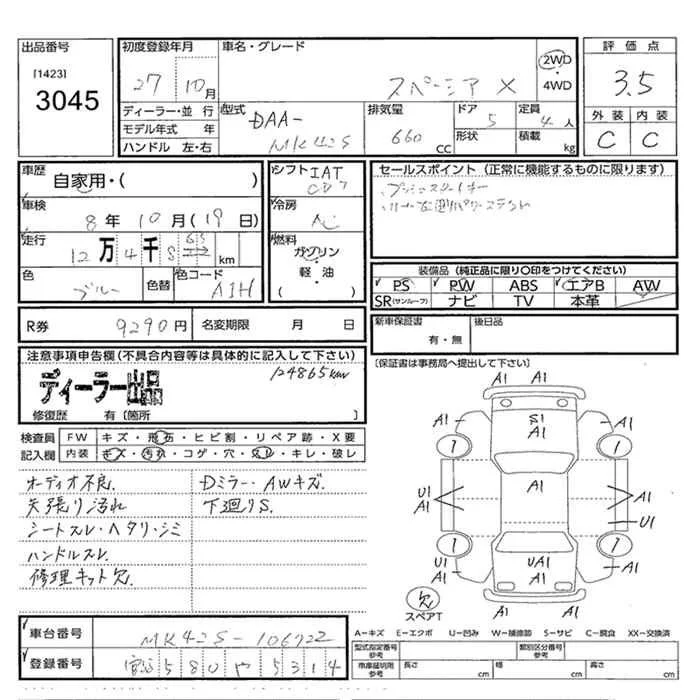 出品番号
[1423]
3045
初度登録年月
27 10月
ディーラー・並 行
モデル年式 年
ハンドル 左・右
車名・グレード
スペーシア X
2WD
・
4WD
型式
DAA-
MK42S
排気量
660
CC
ドア
5
形状
定員
4人
積載
kg
評価点
3.5
外装 内装
C C
車歴
自家用・( )
車検
8年 10月(19日)
走行
12万4千8 65 km
色
ブルー
色替
色コード
シフト IAT
冷房
AC
燃料
ガソリン
・
軽・油
( )
セールスポイント (正常に機能するものに限ります)
・プッシュスタートキー
装備品 (純正品に限り○印をつけてください)
PS PW ABS エアB AW
SR(サンルーフ) ナビ TV 本革
R券 9290円
名変期限 月 日
新車保証書
有・無
後日品
注意事項申告欄(不具合内容等は具体的に記入して下さい)
ディーラー出品
124865km
修復歴 有 [箇所 ]
[保証書は事務局へ提出して下さい]
検査員
記入欄
FW キズ・飛石・ヒビ割・リペア跡・X要
内装 キズ・汚れ・コゲ・穴・スレ・キレ・破レ
オーディオ不良.
天張り汚れ
シートスレ・ヘタリ・シミ
ハンドルスレ.
修理キット欠.
Dミラー・AWキズ.
下廻りS.
A1 A1
A1 S1 A1
A1
1 1
A1
U1
A1
A1
U1
1 1
U1
A1
UA1
A1
A1
欠
スペアT
A1
A-キズ E-エクボ U-凹み W-補修跡 S-サビ C-腐食 XX-交換済
車台番号 MK42S-106722
登録番号 580 や 5314
型式指定番号
参考
類別区分番号
参考
車庫証明用
参考
長さ cm
幅 cm
高さ cm